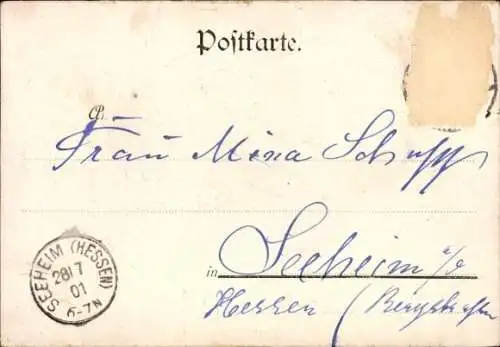 Postkarte.
Frau Mina Schupp
in Seeheim a/B
Hessen (Bergstraße
SEEHEIM (HESSEN)
28/7
01
6-7N